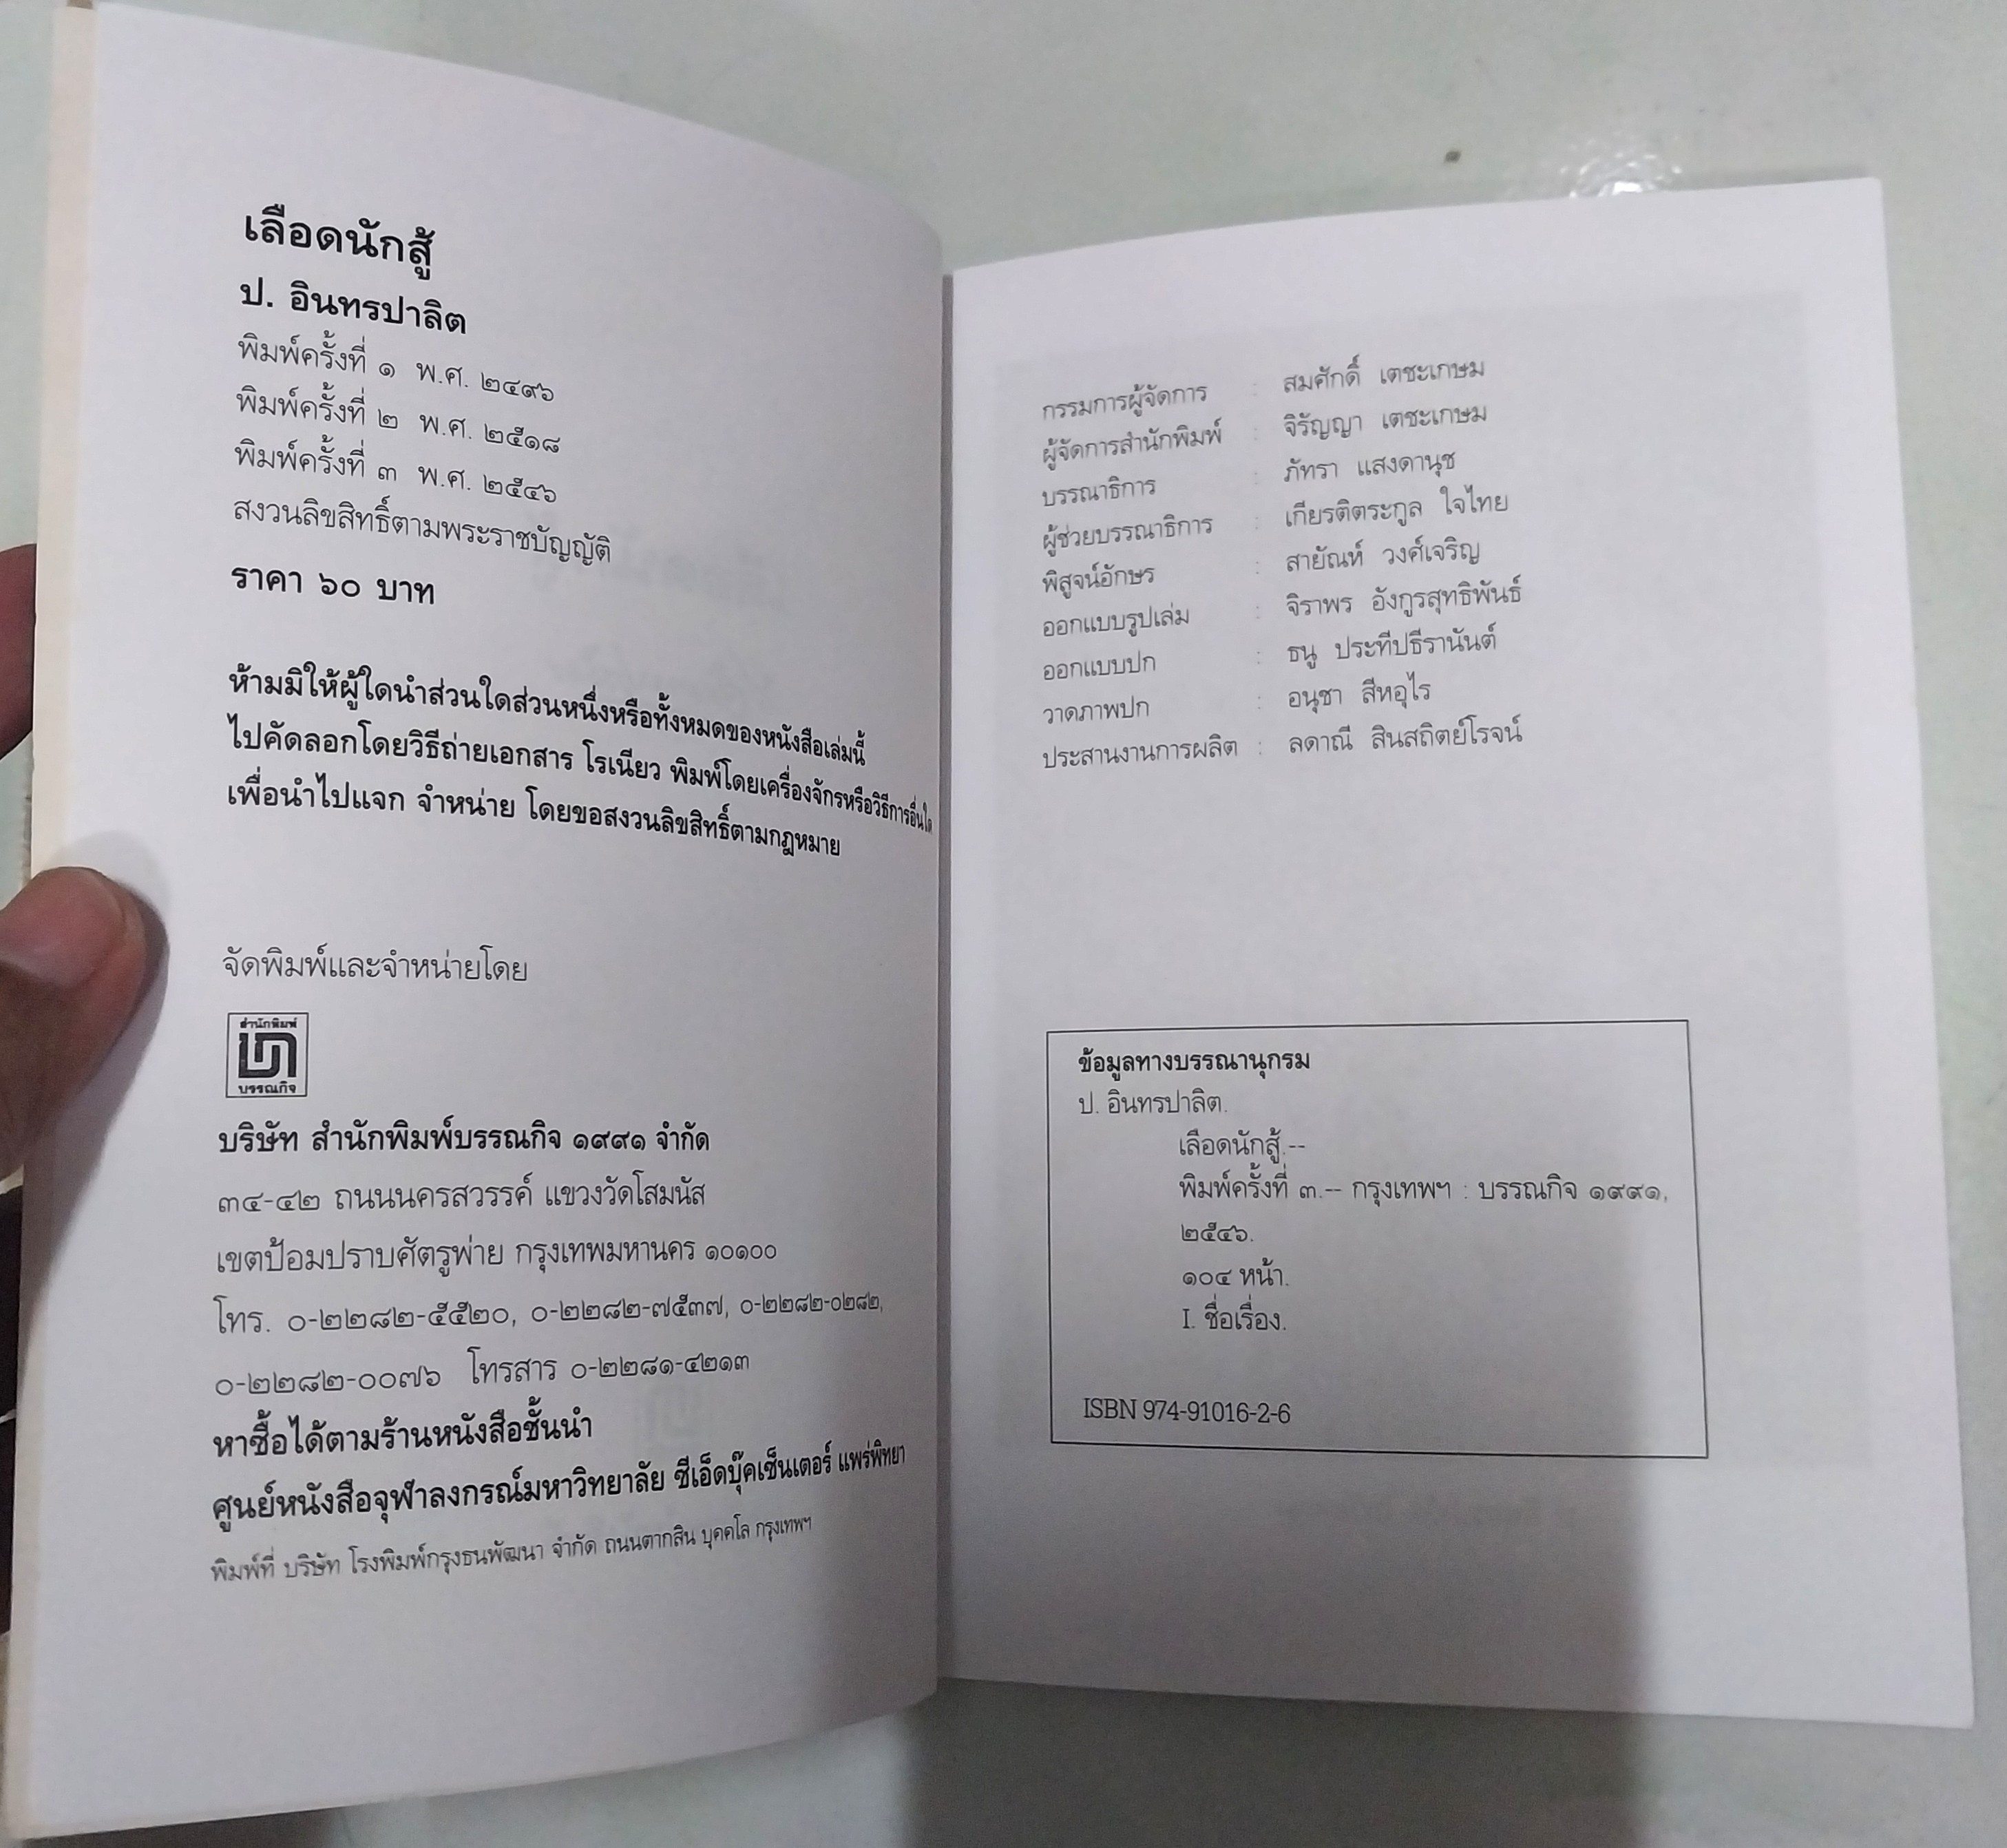 เลือดนักสู้
ป. อินทรปาลิต
พิมพ์ครั้งที่ ๑ พ.ศ. ๒๔๙๖
พิมพ์ครั้งที่ ๒ พ.ศ. ๒๕๑๘
พิมพ์ครั้งที่ ๓ พ.ศ. ๒๕๔๖
สงวนลิขสิทธิ์ตามพระราชบัญญัติ
ราคา ๖๐ บาท
ห้ามมิให้ผู้ใดนำส่วนใดส่วนหนึ่งหรือทั้งหมดของหนังสือเล่มนี้
ไปคัดลอกโดยวิธีถ่ายเอกสาร โรเนียว พิมพ์โดยเครื่องจักรหรือวิธีการอื่นใด
เพื่อนำไปแจก จำหน่าย โดยขอสงวนลิขสิทธิ์ตามกฎหมาย
จัดพิมพ์และจำหน่ายโดย
สำนักพิมพ์
บรรณกิจ
บริษัท สำนักพิมพ์บรรณกิจ ๑๙๙๑ จำกัด
๓๔-๔๒ ถนนนครสวรรค์ แขวงวัดโสมนัส
เขตป้อมปราบศัตรูพ่าย กรุงเทพมหานคร ๑๐๑๐๐
โทร. ๐-๒๒๘๒-๕๕๒๐, ๐-๒๒๘๒-๗๕๓๗, ๐-๒๒๘๒-๐๒๘๒,
๐-๒๒๘๒-๐๐๗๖ โทรสาร ๐-๒๒๘๑-๔๒๑๓
หาซื้อได้ตามร้านหนังสือชั้นนำ
ศูนย์หนังสือจุฬาลงกรณ์มหาวิทยาลัย ซีเอ็ดบุ๊คเซ็นเตอร์ แพร่พิทยา
พิมพ์ที่ บริษัท โรงพิมพ์กรุงธนพัฒนา จำกัด ถนนตากสิน บุคคโล กรุงเทพฯ
กรรมการผู้จัดการ : สมศักดิ์ เตชะเกษม
ผู้จัดการสำนักพิมพ์ : จิรัญญา เตชะเกษม
บรรณาธิการ : ภัทรา แสงดานุช
ผู้ช่วยบรรณาธิการ : เกียรติตระกูล ใจไทย
พิสูจน์อักษร : สายัณห์ วงศ์เจริญ
ออกแบบรูปเล่ม : จิราพร อังกูรสุทธิพันธ์
ออกแบบปก : ธนู ประทีปธีรานันต์
วาดภาพปก : อนุชา สีหอุไร
ประสานงานการผลิต : ลดาณี สินสถิตย์โรจน์
ข้อมูลทางบรรณานุกรม
ป. อินทรปาลิต.
เลือดนักสู้.--
พิมพ์ครั้งที่ ๓.-- กรุงเทพฯ : บรรณกิจ ๑๙๙๑,
๒๕๔๖.
๑๐๔ หน้า.
I. ชื่อเรื่อง.
ISBN 974-91016-2-6